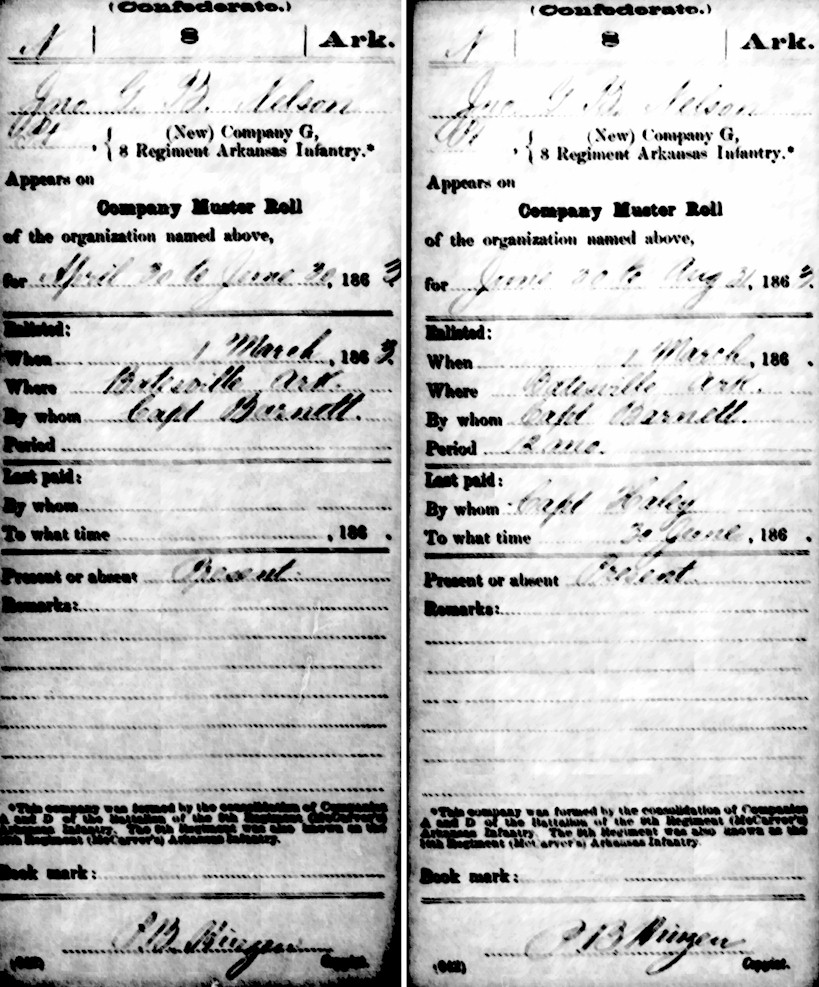 (Confederate.)
N | 8 | Ark.
Jno G. B. Nelson
(New) Company G,
8 Regiment Arkansas Infantry.*
Appears on
Company Muster Roll
of the organization named above,
for April 30 to June 30, 1863
Enlisted:
When 1 March, 1863.
Where Batesville Ark.
By whom Capt Barnett.
Period
Last paid:
By whom
To what time , 186 .
Present or absent Present
Remarks:
*This company was formed by the consolidation of Companies
A and D of the Battalion of the 8th Regiment (McCarver's)
Arkansas Infantry. The 8th Regiment was also known as the
14th Regiment (McCarver's) Arkansas Infantry.
Book mark:
(642) Copyist.
(Confederate.)
N | 8 | Ark.
Jno G B. Nelson
(New) Company G,
8 Regiment Arkansas Infantry.*
Appears on
Company Muster Roll
of the organization named above,
for June 30 to Aug 31, 1863.
Enlisted:
When 1 March, 186 .
Where Batesville Ark.
By whom Capt Barnett.
Period 12 mo.
Last paid:
By whom Capt Haley
To what time 30 June, 186 .
Present or absent Present
Remarks:
*This company was formed by the consolidation of Companies
A and D of the Battalion of the 8th Regiment (McCarver's)
Arkansas Infantry. The 8th Regiment was also known as the
14th Regiment (McCarver's) Arkansas Infantry.
Book mark:
(642) Copyist.